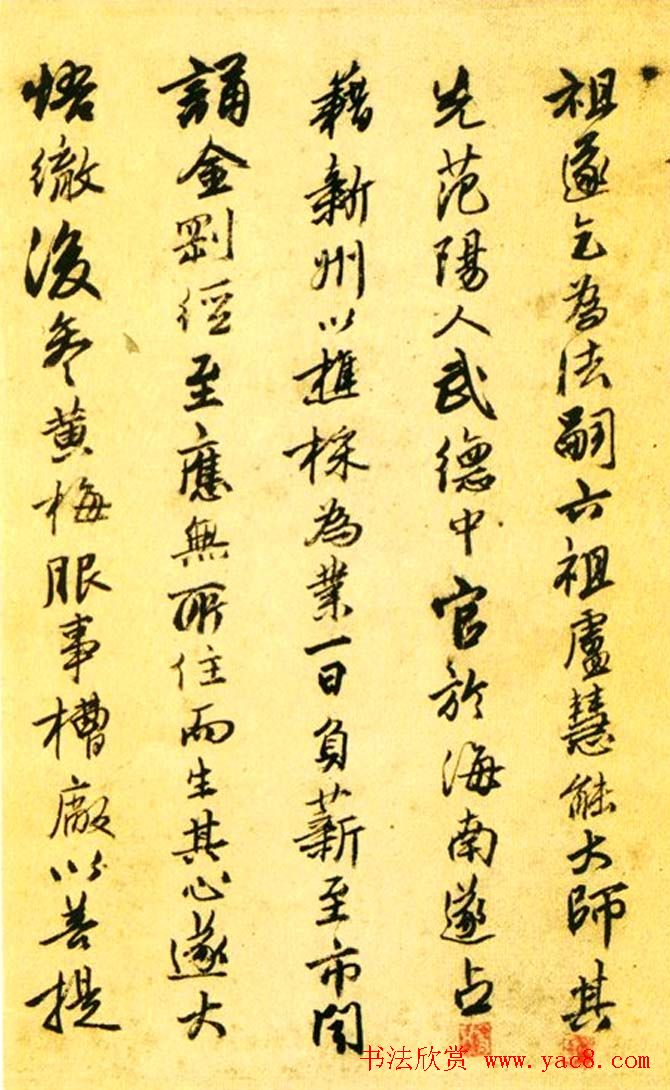 祖遂乞為法嗣六祖盧慧能大師其
先范陽人武德中官於海南遂占
藉新州以樵採為業一日負薪至市聞
誦金剛經至應無所住而生其心遂大
悟徹後参黄梅服事槽廠以菩提
书法欣赏 www.yac8.com